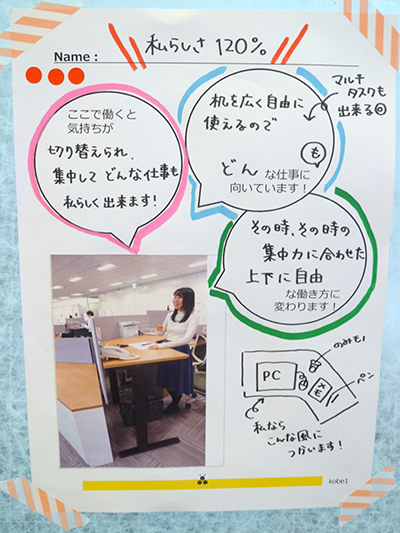 私らしさ 120%
Name :
マルチ
タスクも
出来る◎
ここで働くと
気持ちが
切り替えられ、
集中して どんな仕事も
私らしく出来ます!
机を広く自由に
使えるので
も
どん な仕事に
向いています!
その時、その時の
集中力に合わせた
上下に自由
な働き方に
変わります!
のみもの
PC
メモ
ペン
私なら
こんな風に
つかいます!
kobe1